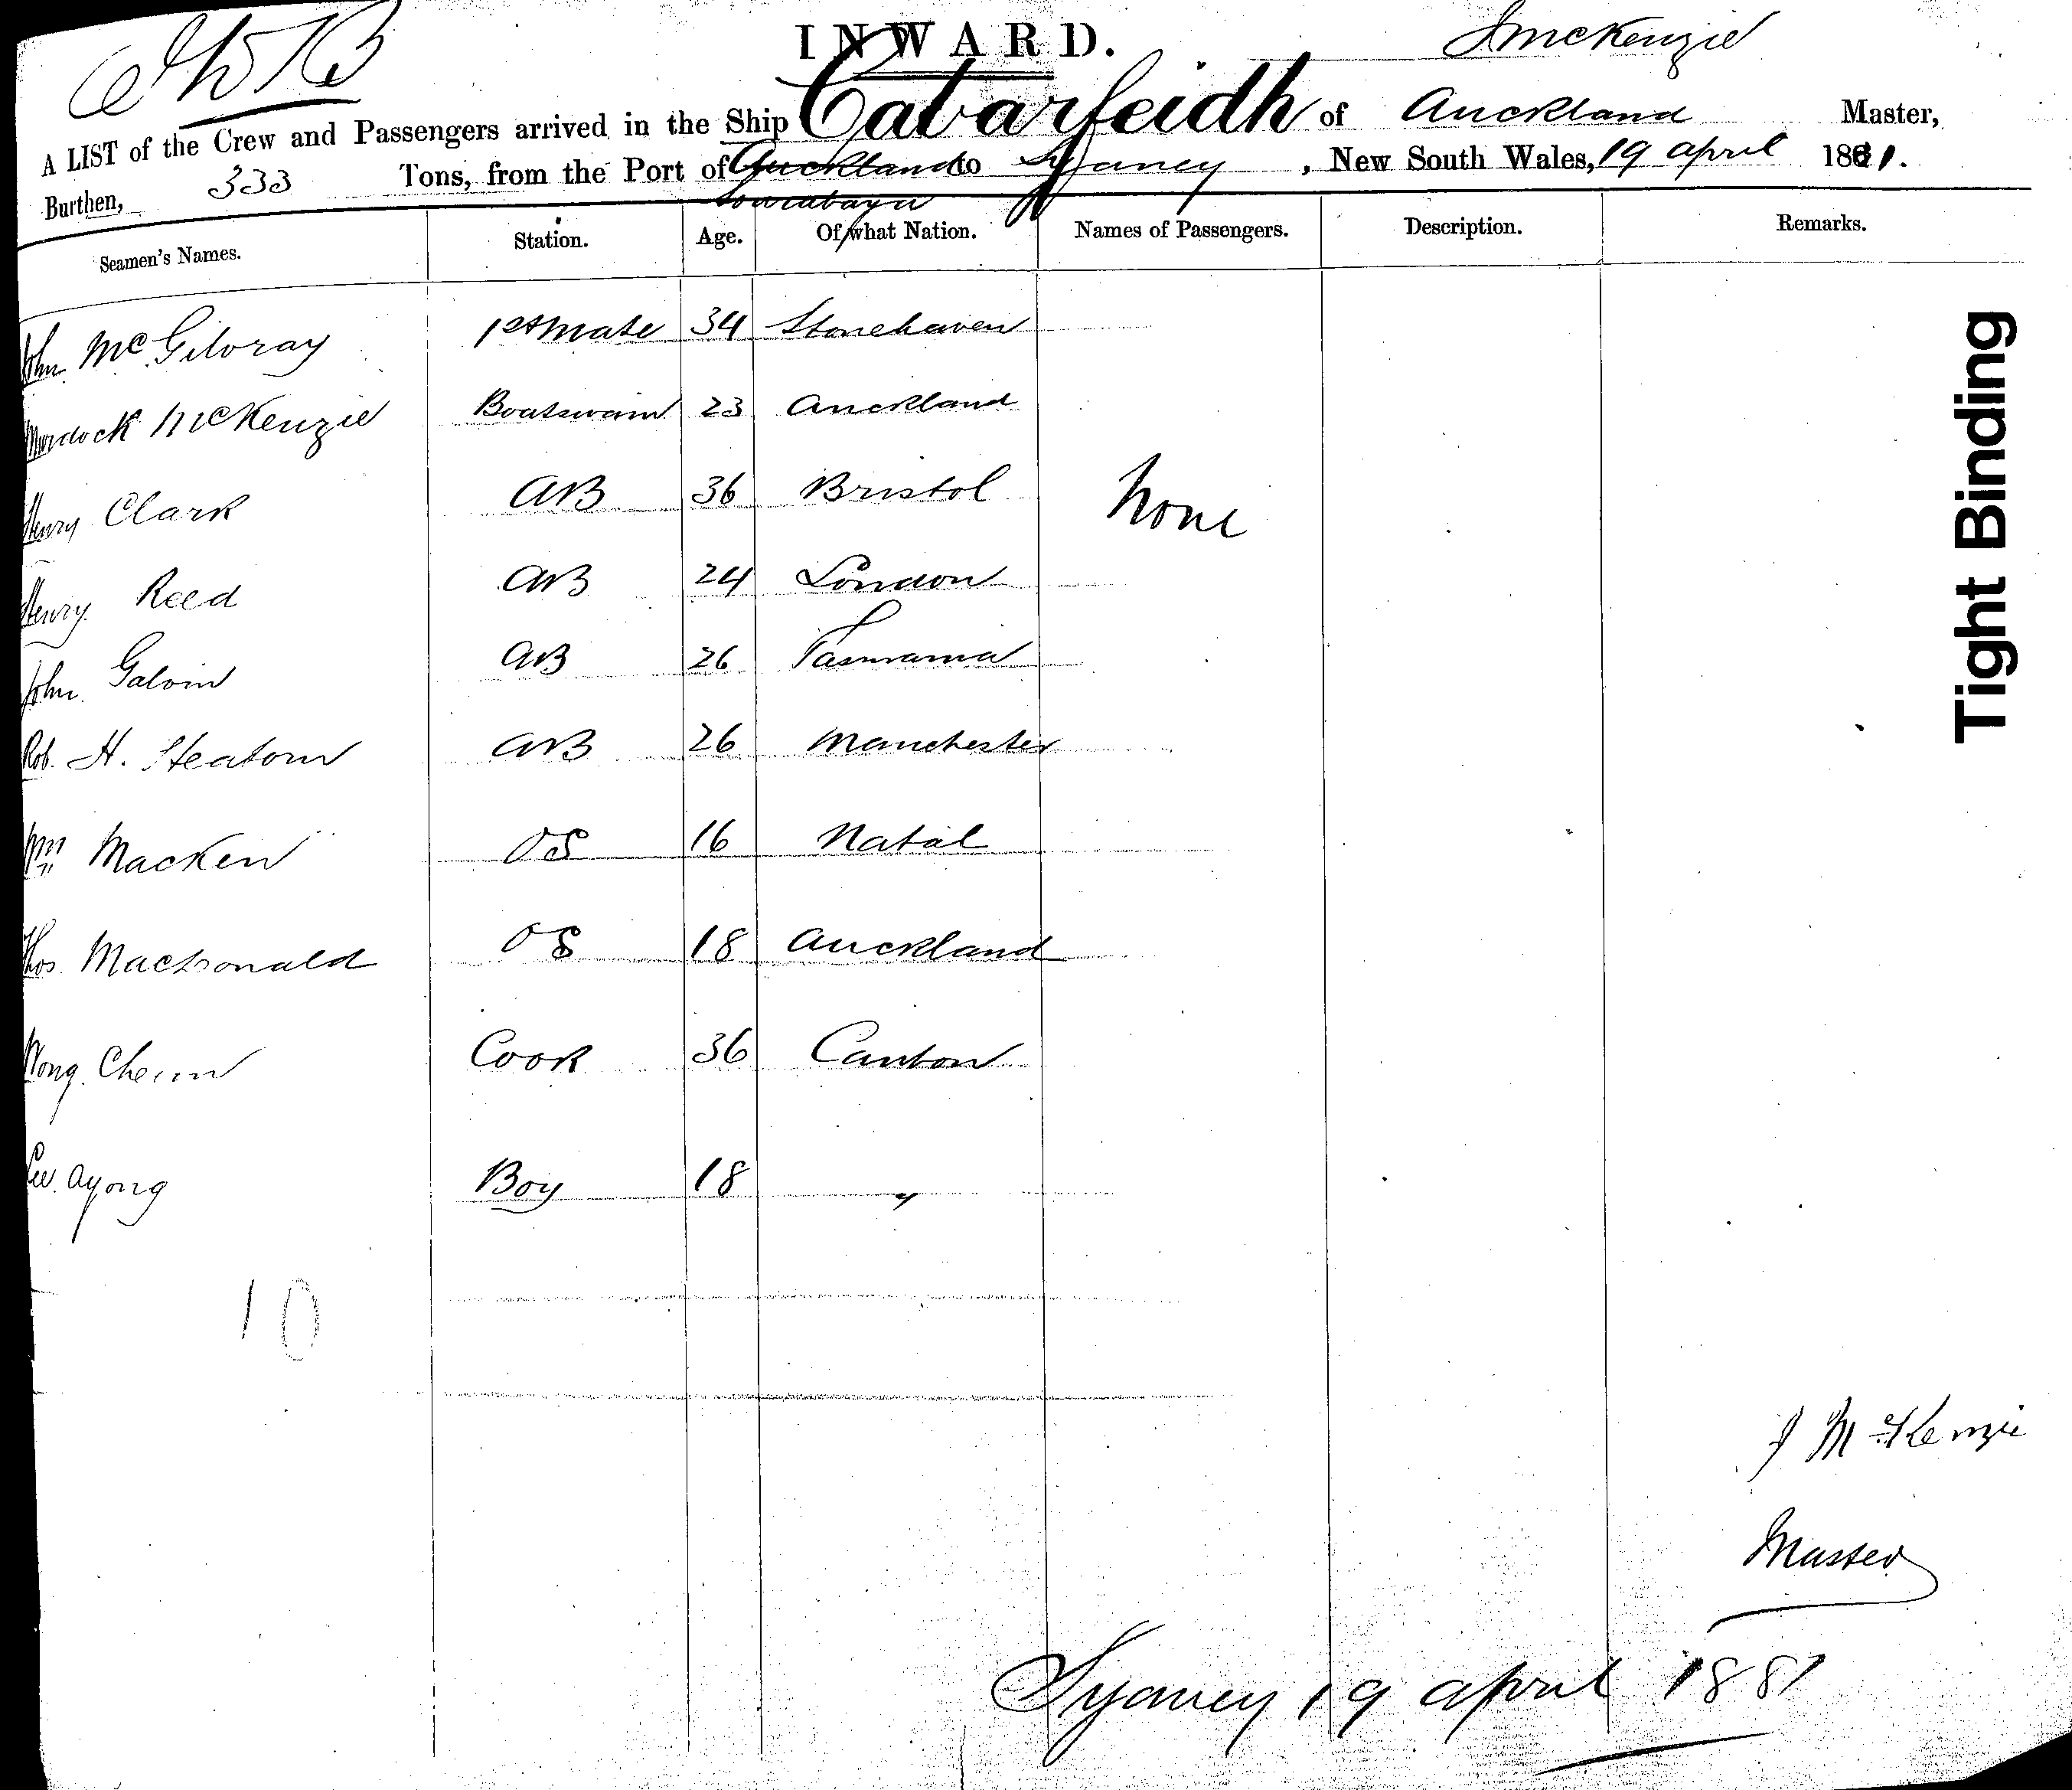 INWARD. J McKenzie
A LIST of the Crew and Passengers arrived in the Ship Cabarfeidh of Auckland Master,
Burthen, 333 Tons, from the Port of Auckland to Sydney, New South Wales, 19 april 1881.
Sourabaya
Seamen's Names. Station. Age. Of what Nation. Names of Passengers. Description. Remarks.
John McGilvray 1st Mate 34 Stonehaven
Murdock McKenzie Boatswain 23 Auckland
Henry Clark AB 36 Bristol None
Henry Reed AB 24 London
John Galvin AB 26 Tasmania
Rob. H. Heaton AB 26 Manchester
Wm Macken OS 16 Natal
Thos Macdonald OS 18 Auckland
Wong Cook 36 Canton
Ayong Boy 18 "
10
J McKenzie
Master
Sydney 19 april 1881
Tight Binding